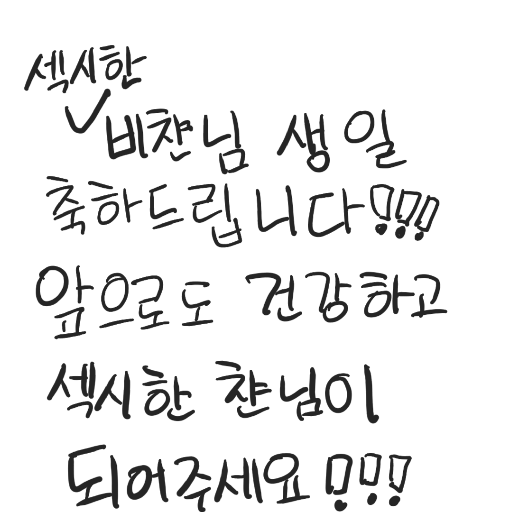 섹시한
비챤님 생일
축하드립니다!!!
앞으로도 건강하고
섹시한 챤님이
되어주세요!!!